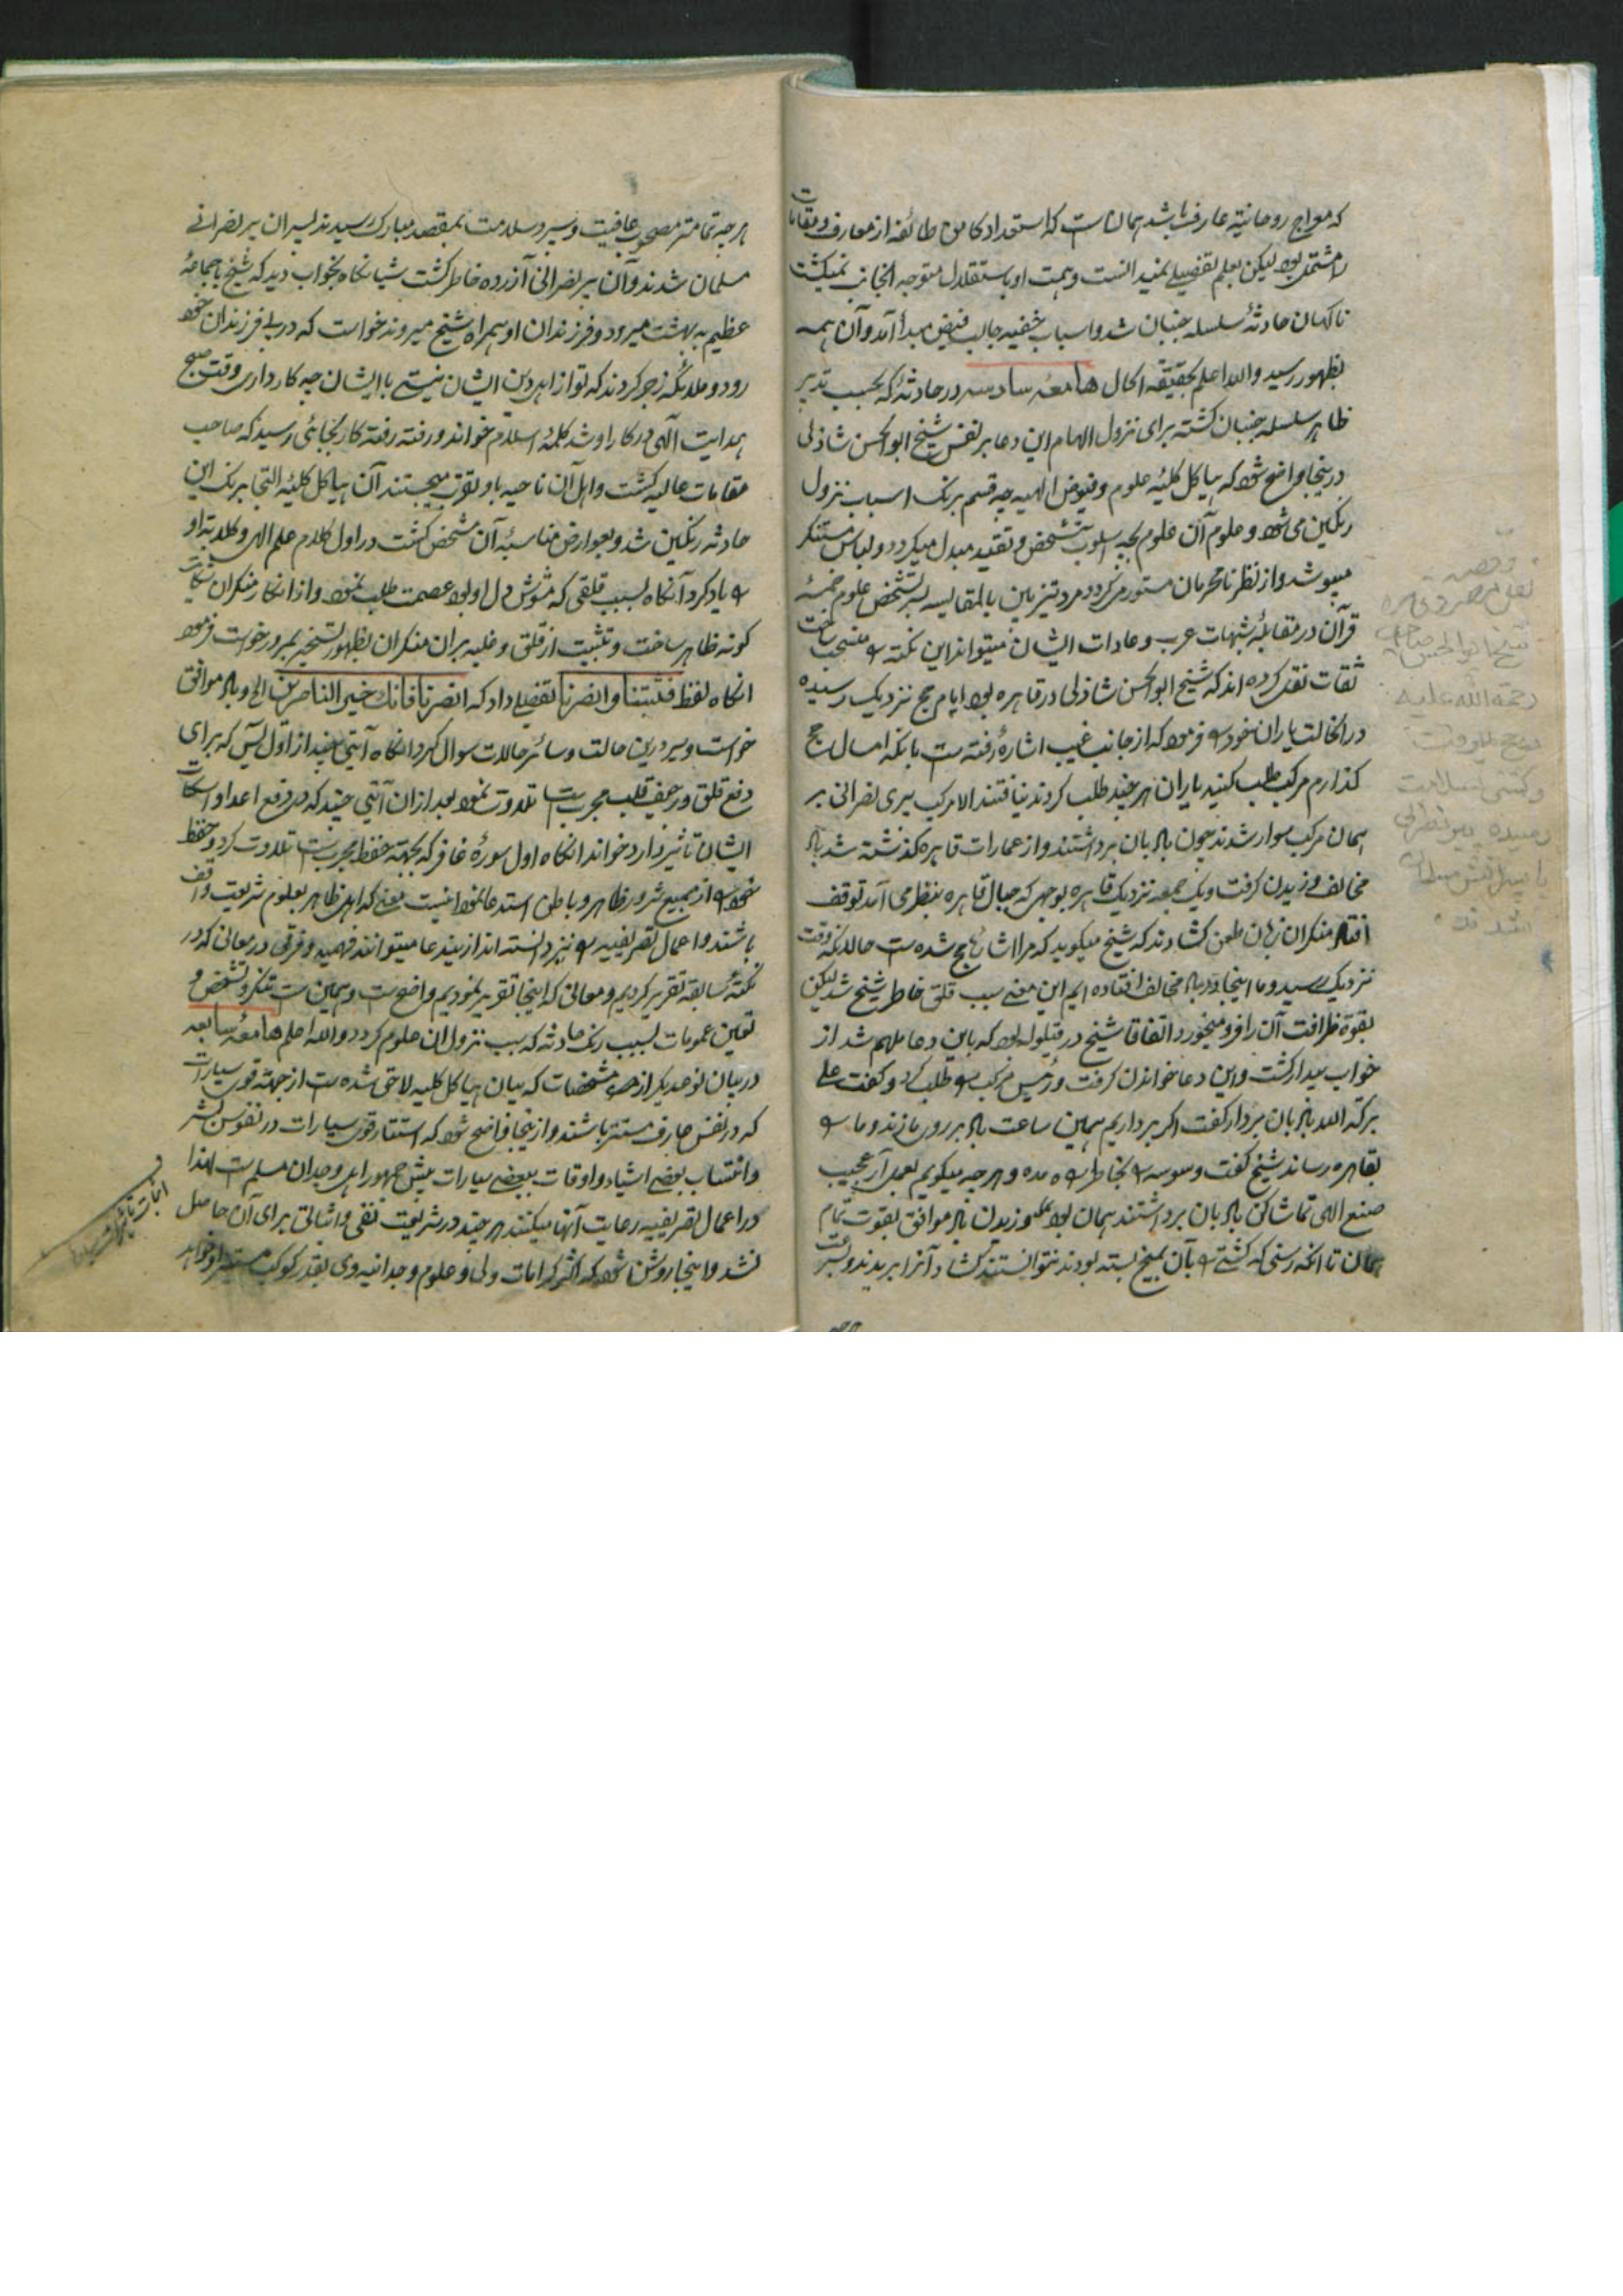 که مواج روحانیة عارف باشد همان ست که استعداد کامن طائفه از معارف و مقامات
را مشتمل بود لیکن بعلم تفصیلے نمیدانست و همت او باستقلال متوجه آنجانب نمیگشت
ناگهان حادثهٔ سلسله جنبان شد و اسباب خفیه جالب فیض مبدأ آمد و آن همه
بظهور رسید والله اعلم بحقیقة الحال هامعهٔ سادسه در حادثهٔ که بحسب تدبیر
ظاهر سلسله جنبان گشته برای نزول الهام این دعا بر نفس شیخ ابوالحسن شاذلی
در ینجا واضح شود که هیاکل کلیهٔ علوم و فیوض الهیه چه قسم برنگ اسباب نزول
رنگین می شود و علوم آن علوم بچه اسلوب تشخص و تقید مبدل میگردد و لباس مستنکر
میپوشد و از نظر نامحرمان مستور میگردد مرد تیزبین بالمقایسه بر تشخص علوم خمسهٔ
قرآن در مقابلهٔ شبهات عرب و عادات ایشان میتواند این نکته را منسحب ساخت
ثقات نقل کرده اند که شیخ ابوالحسن شاذلی در قاهره بود ایام حج نزدیک رسیده
در آنحالت یاران خود را فرمود که از جانب غیب اشارهٔ رفته ست بآنکه امسال حج
گذارم مرکب طلب کنید یاران هر چند طلب کردند نیافتند الا مرکب پیری نصرانی بر
همان مرکب سوار شدند چون بادبان برداشتند و از عمارات قاهره گذشته شد باد
مخالف وزیدن گرفت و یک جمعه نزدیک قاهره بوجهی که جبال قاهره بنظر می آمد توقف
افتاد منکران زبان طعن گشادند که شیخ میگوید که مرا اشاره بحج شده ست حالانکه وقت
نزدیک رسید و ما اینجا در باد مخالف افتاده ایم این معنی سبب قلق خاطر شیخ شد لیکن
بقوة ظرافت آن را فرو میخورد اتفاقا شیخ در قیلوله بود که باین دعا ملهم شد از
خواب بیدار گشت و این دعا خواندن گرفت و رئیس مرکب را طلب کرد و گفت علی
برکة الله بادبان بردار گفت اگر برداریم همین ساعت باد بر روی ما زند و ما را
بقاهره رساند شیخ گفت وسوسه را بخاطر راه مده و هر چه میگویم بعمل آر عجیب
صنع الهی تماشا کن بادبان برداشتند همان بود و وزیدن باد موافق بقوت تمام
همان تا آنکه رسنی که کشتی را بآن بمیخ بسته بودند نتوانستند کشاد آنرا بریدند و بسرعت
قصه
شیخ ابوالحسن
رحمة الله علیه
و کشتی بسلامت
رسیده پیر نصرانی
با پسرانش مسلمان
شدند
هر چه تمامتر مصحوب عافیت و سیر و سلامت بمقصد مبارک رسیدند پسران پیر نصرانی
مسلمان شدند و آن پیر نصرانی آزرده خاطر گشت شبانگاه بخواب دید که شیخ با جماعهٔ
عظیم به بهشت میرود و فرزندان او همراه شیخ میروند خواست که در پے فرزندان خود
رود و ملائکه زجر کردند که تو از اهل دین ایشان نیستی با ایشان چه کار داری وقت صبح
هدایت الهی در کار او شد کلمهٔ اسلام خواند و رفته رفته کار بجائی رسید که صاحب
مقامات عالیه گشت و اهل آن ناحیه باو تقرب میجستند آن هیاکل کلیهٔ التجا برنگ این
حادثه رنگین شد و بعوارض مناسبهٔ آن متشخص گشت در اول کلام علم الهی و کلاءة او
را یاد کرد آنگاه بسبب قلقی که مشوش دل او بود عصمت طلب نمود و از انکار منکران شکایت
گونه ظاهر ساخت و تثبیت از قلق و غلبه بران منکران بظهور تسخیر بحر درخواست فرمود
آنگاه لفظ فثبتنا وانصرنا تفصیلے داد که انصرنا فانك خیر الناصرین الی و باد موافق
خواست و سیر درین حالت و سائر حالات سوال کرد آنگاه آیتی چند از اول یس که برای
دفع قلق و رجف قلب مجرب ست تلاوت نمود بعد ازان آیتی چند که در دفع اعدا و اسکات
ایشان تاثیر دارد خواند آنگاه اول سورهٔ غافر که بجهة حفظ مجرب ست تلاوت کرد و حفظ
خود را از جمیع شرور ظاهر و باطن استدعا نمود اینست معنی که اهل ظاهر بعلوم شریعت واقف
باشند و اعمال تصریفیه را نیز دانسته اند ازیندعا میتوانند فهمید و فرقی در معانی که در
نکتهٔ سابقه تقریر کردیم و معانی که اینجا تقریر نمودیم واضح ست و همین ست تنکر و تشخص و
تعین عمومات بسبب رنگ حادثه که سبب نزول آن علوم گردد والله اعلم هامعهٔ سابعه
در بیان نوع دیگر از مشخصات که بیان هیاکل کلیه لاحق شده ست از جهة قوی سیارات
که در نفس عارف مستتر باشند و ازینجا واضح شود که استتار قوی سیارات در نفوس بشر
و انتساب بعضے اشیاء و اوقات ببعضے سیارات پیش جمهور اهل وجدان مسلم ست لهذا
در اعمال تصریفیه رعایت آنها میکنند هر چند در شریعت نفی و اثباتی برای آن حاصل
نشد و اینجا روشن شود که اکثر کرامات ولی و علوم وجدانیه وی بقدر کوکب مستتر او خواهد